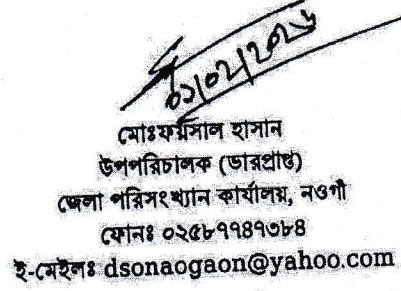 ০১/০২/২০২৬
মোঃফয়সাল হাসান
উপপরিচালক (ভারপ্রাপ্ত)
জেলা পরিসংখ্যান কার্যালয়, নওগাঁ
ফোনঃ ০২৫৮৭৭৪৭৩৮৪
ই-মেইলঃ dsonaogaon@yahoo.com